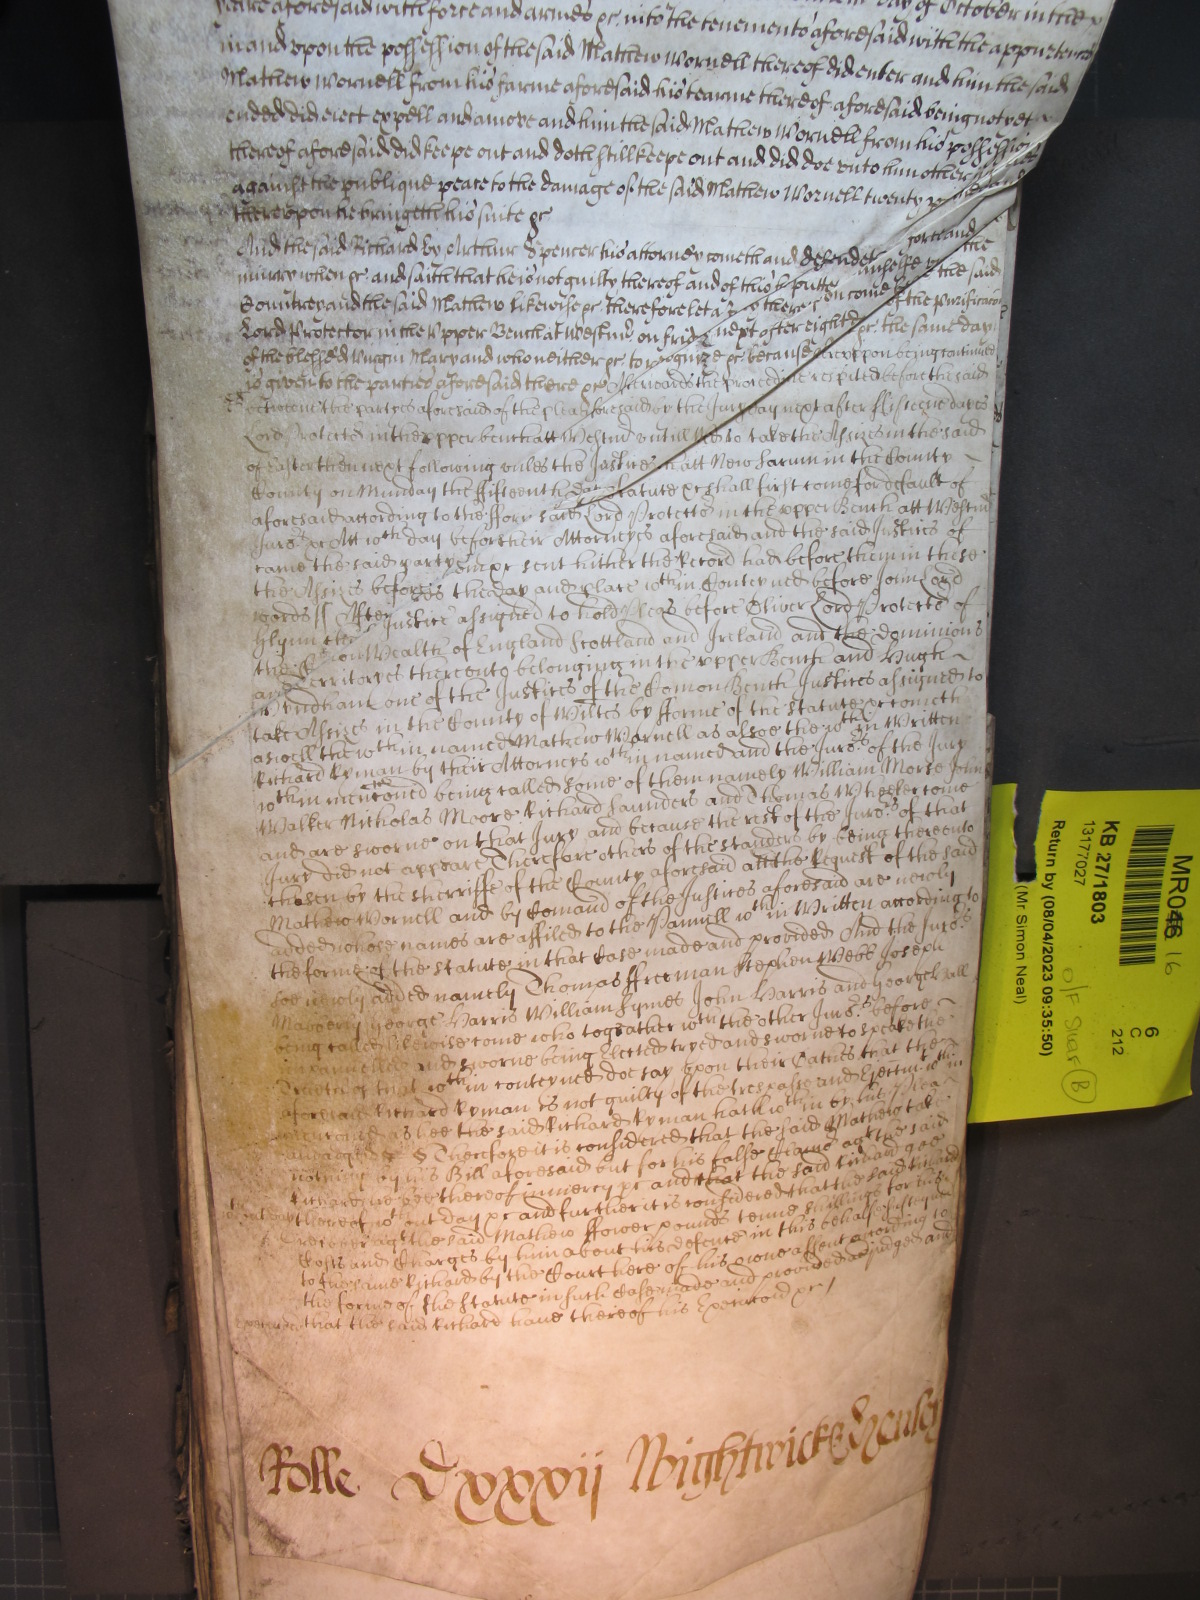 yeare aforesaid with force and armes &c. into the tenements aforesaid with the appurtennces
in and upon the possession of the said Mathew Wornell thereof did enter and him the said
Mathew Wornell from his farme aforesaid his tearme thereof aforesaid being not yet
ended did eiect expell and amove and him the said Mathew Wornell from his possession
thereof aforesaid did keepe out and doth still keepe out and did doe unto him other
against the publique peace to the damage of the said Mathew Wornell twenty
thereupon he bringeth his suite &c
And the said Richard by Arthur Spencer his attorney cometh and defendeth force and
iniury when &c. and saith that he is not guilty thereof and of this putte himselfe the
Countrey and the said Mathew likewise &c. therefore let a come the said
Lord Protector in the Upper Bench at Westmr. on friday next after eight of the Purificacon
of the blessed Virgin Mary and who neither &c. to recognize &c. because &c. the same day
is given to the parties aforesaid there &c. Afterwards the proceedings thereupon being continued
betweene the partyes aforesaid of the plea aforesaid by the Jury respited before the said
Lord Protector in the upper bench att Westmr untill day next after fifteene dayes
of Easter then next following unles the Justices to take the Assizes in the said
County on Munday the fifteenth day att New Sarum in the County
aforesaid according to the fforme statute &c shall first come for default of
Jurors &c Att wch day before the said Lord Protector in the upper Bench att Westmr
came the said partyes by their Attorneyes aforesaid and the said Justices of
the Assizes before &c sent hither the Record had before them in these
words ss Afterwards the day and place wthin Conteyned before John Lord
Glynn cheife Justice assigned to hold Pleas before Oliver Lord Protector of
the Comon Wealth of England Scottland and Ireland and the dominions
and Territoryes thereonto belonging in the upper Bench and Hugh
Wyndham one of the Justices of the Comon Bench Justices assigned to
take Assizes in the County of Wiltes by fforme of the statute &c cometh
aswell the wthin named Mathew Wornell as alsoe the wthin written
Richard Ryman by their Attorneys wthin named and the Jurors of the Jury
wthin mencioned being called some of them namely William Morse John
Walker Nicholas Moore Richard Saunders and Thomas Wheeler come
and are sworne on that Jury and because the rest of the Jurors of that
Jury did not appeare Therefore others of the standers by being thereonto
chosen by the sherriffe of the County aforesaid att the Request of the said
Mathew Wornell and by Comand of the Justices aforesaid are newly
added whose names are affiled to the Pannell wthin written according to
the forme of the statute in that Case made and provided And the Jurors
soe newly added namely Thomas ffreeman Stephen Webb Joseph
George Harris William Symes John Harris and George
being called likewise come who togeather wth the other Jurors before
impannelled and sworne being Elected tryed and sworne to speake the
Trueth of that wthin conteyned doe say upon their Oathes that the
aforesaid Richard Ryman is not guilty of the trespasse and Ejectmt wthin
mencioned as hee the said Richard Ryman hath wthin by his Plea
alleadged &c Therefore it is considered that the said Mathew take
nothing by his Bill aforesaid but for his false Clame agt the said
Richard bee thereof in mercy &c and that the said Richard goe
thereof wthout day &c and further it is considered that the said Richard
recover agt the said Mathew ffower pounds tenne shillings for his
Costs and Charges by him about his defence in this behalfe susteyned
to the same Richard by the Court here of his owne assent according to
the forme of the statute in such Case made and provided adjudged and
that the said Richard have thereof his Execucon &c
Rolle Dxxxij Wightwicke & Henley
MR046 16
6
C
212
KB 27/1803
13177027
Return by (08/04/2023 09:35:50)
(Mr Simon Neal)
B